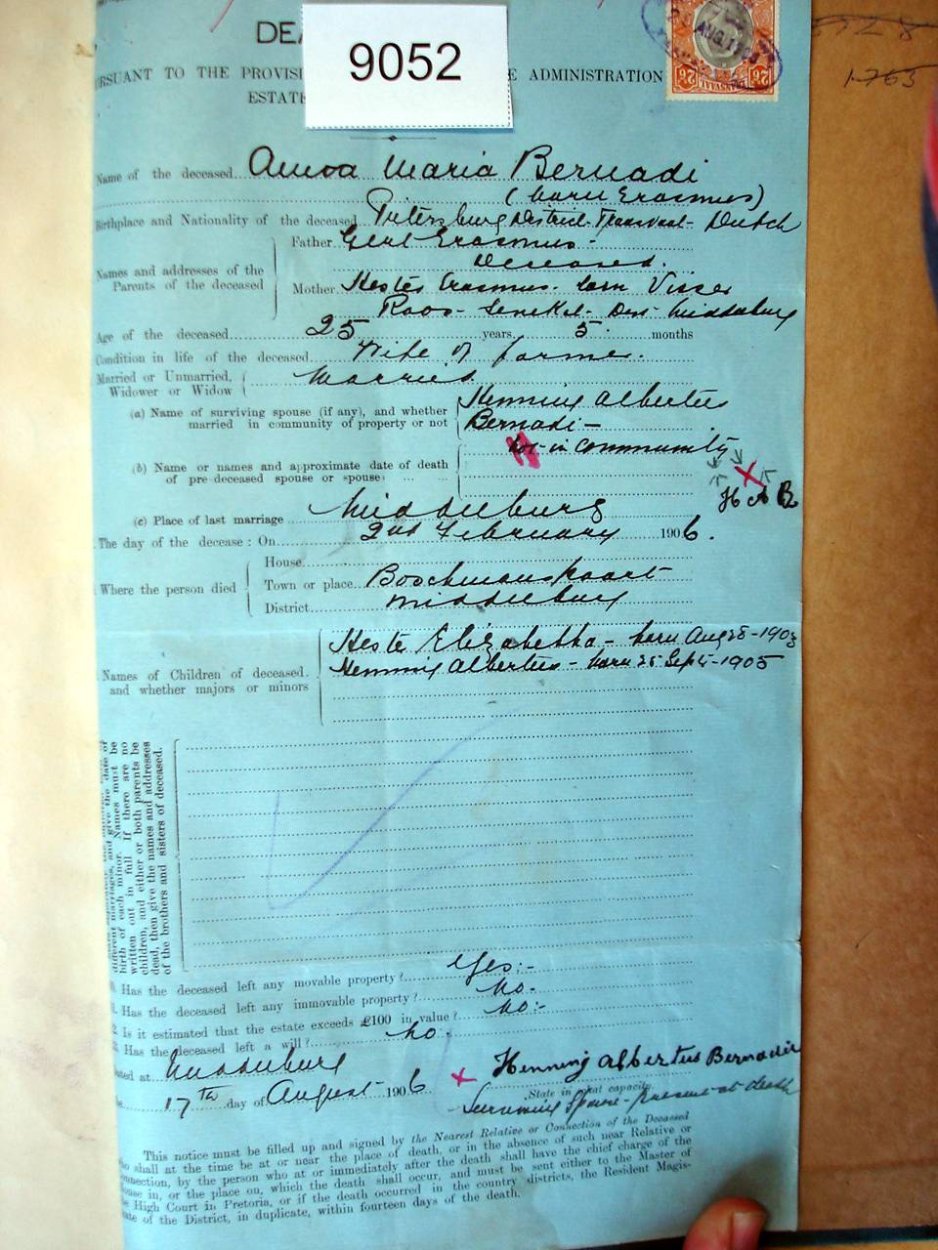 DEA
9052
RSUANT TO THE PROVISI E ADMINISTRATION
ESTATE
AUG
Name of the deceased Anna Maria Bernadi
(born Erasmus)
Birthplace and Nationality of the deceased Pietersburg District Transvaal - Dutch
Names and addresses of the Parents of the deceased
Father Gert Erasmus -
Deceased.
Mother Hester Erasmus - born Visser
Roos-Senekal - Dist. Middelburg
Age of the deceased 25 years 5 months
Condition in life of the deceased Wife of farmer.
Married or Unmarried, Widower or Widow Married
(a) Name of surviving spouse (if any), and whether married in community of property or not
Henning Albertus
Bernadi -
in community
(b) Name or names and approximate date of death of pre-deceased spouse or spouse
H A B
(c) Place of last marriage Middelburg
The day of the decease: On 2nd February 1906.
Where the person died
House
Town or place
District Middelburg
Names of Children of deceased and whether majors or minors
Heste Elizabetha - born Aug 28 - 1903
Henning Albertus - born 25 Sept - 1905
different marriages, and give the date of
birth of each minor. Names must be
written out in full. If there are no
children, and either or both parents be
dead, then give the names and addresses
of the brothers and sisters of deceased.
Has the deceased left any movable property? Yes:-
Has the deceased left any immovable property? No-
Is it estimated that the estate exceeds £100 in value? No:-
Has the deceased left a will? No-
ated at Middelburg
17th day of August 1906 x Henning Albertus Bernadi
State in what capacity.
Surviving Spouse - present at death
This notice must be filled up and signed by the Nearest Relative or Connection of the Deceased
who shall at the time be at or near the place of death, or in the absence of such near Relative or
nnection, by the person who at or immediately after the death shall have the chief charge of the
use in, or the place on, which the death shall occur, and must be sent either to the Master of
e High Court in Pretoria, or if the death occurred in the country districts, the Resident Magis-
ate of the District, in duplicate, within fourteen days of the death.